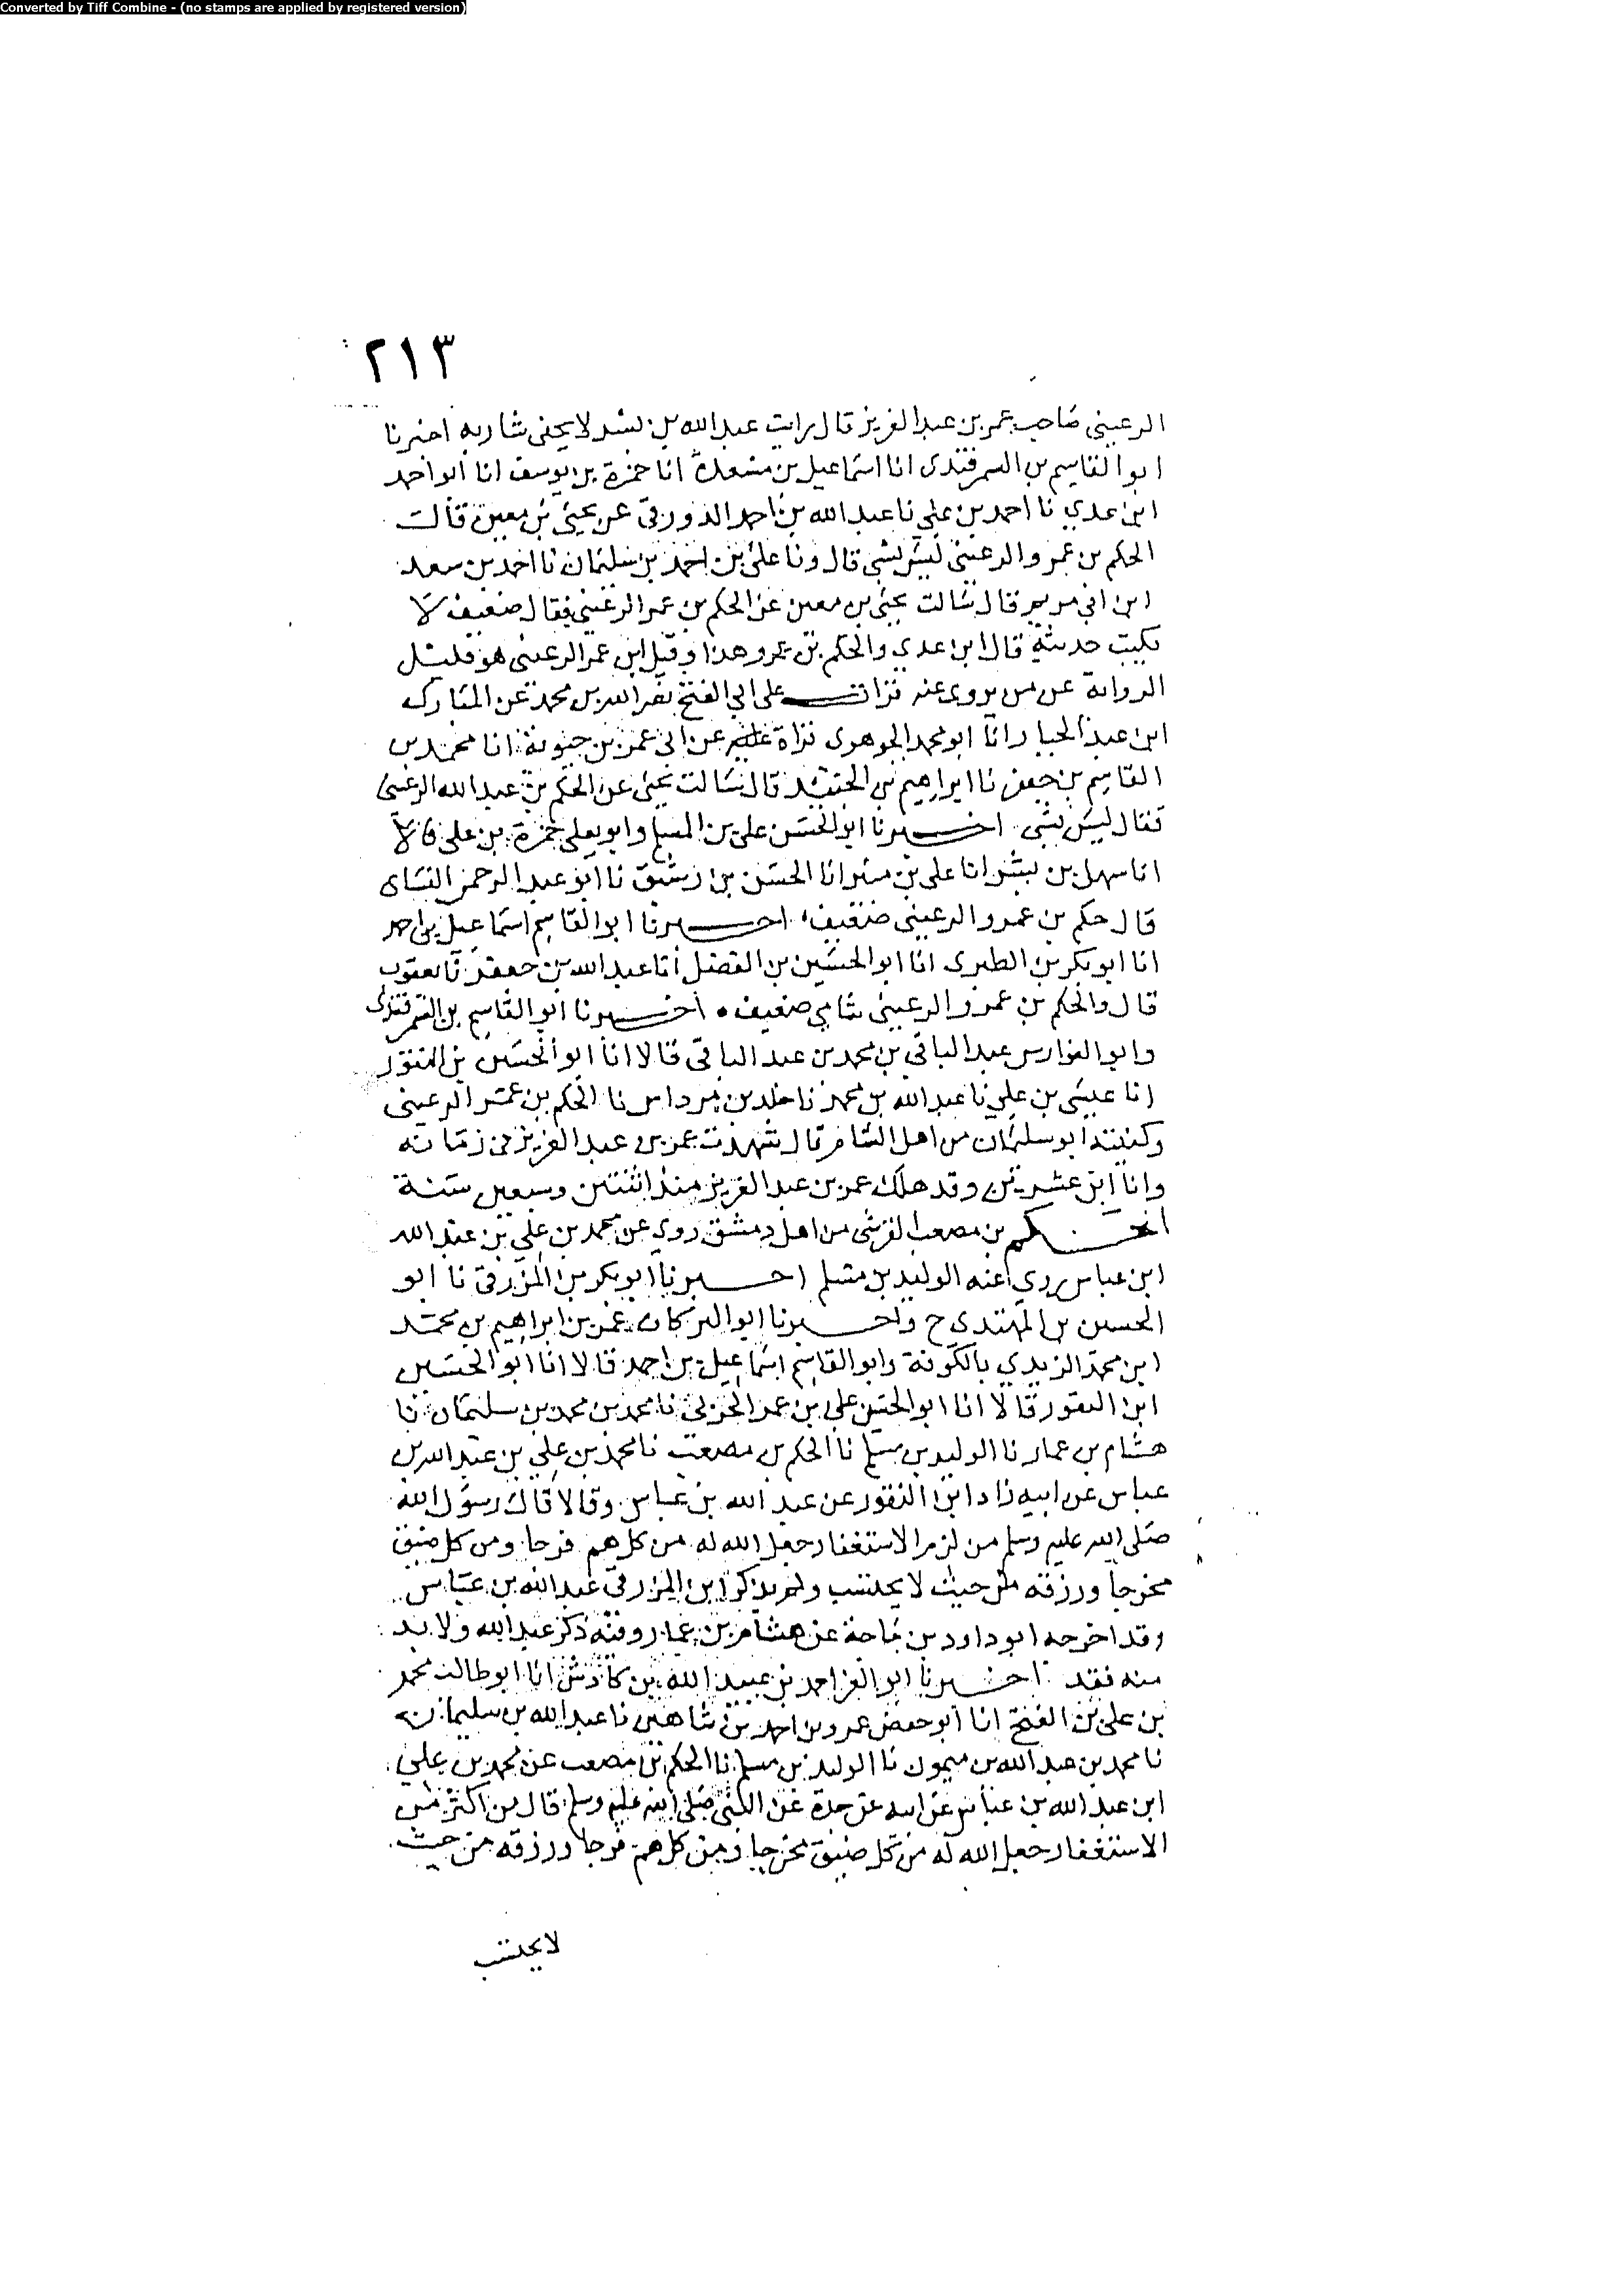 Converted by Tiff Combine - (no stamps are applied by registered version)
٢١٣
الرعيني صاحب عمر بن عبد العزيز قال رايت عبد الله بن بسر لا يحفي شاربه اخبرنا
ابو القاسم بن السمرقندي انا اسماعيل بن مسعدة انا حمزة بن يوسف انا ابو احمد
ابن عدي نا احمد بن علي نا عبد الله بن احمد الدورقي عن يحيى بن معين قال
الحكم بن عمرو الرعيني ليس بشي قال ونا علي بن احمد بن سليمان نا احمد بن سعد
ابن ابي مريم قال سالت يحيى بن معين عن الحكم بن عمر الرعيني فقال ضعيف لا
يكتب حديثه قال ابن عدي والحكم بن عمرو هذا وقيل ابن عمر الرعيني هو قليل
الرواية عن من يروي عنه قرات على ابي الفتح نصر الله بن محمد عن المبارك
ابن عبد الجبار انا ابو محمد الجوهري قراة عليه عن ابي عمر بن حيوية انا محمد بن
القاسم بن جعفر نا ابراهيم بن الجنيد قال سالت يحيى عن الحكم بن عبد الله الرعيني
فقال ليس بشي اخبرنا ابو الحسن علي بن المسلم وابو يعلى حمزة بن علي قالا
انا سهل بن بشر انا علي بن منير انا الحسن بن رشيق نا ابو عبد الرحمن النساي
قال حكم بن عمرو الرعيني ضعيف اخبرنا ابو القاسم اسماعيل بن احمد
انا ابو بكر بن الطبري انا ابو الحسين بن الفضل انا عبد الله بن جعفر نا يعقوب
قال والحكم بن عمرو الرعيني شامي ضعيف اخبرنا ابو القاسم بن السمرقندي
وابو الفوارس عبد الباقي بن محمد بن عبد الباقي قالا انا ابو الحسين بن النقور
انا عيسى بن علي نا عبد الله بن محمد نا خلد بن مرداس نا الحكم بن عمر الرعيني
وكنيته ابو سليمان من اهل الشام قال شهدت عمر بن عبد العزيز في زمانه
وانا ابن عشرين وقد هلك عمر بن عبد العزيز منذ اثنتين وسبعين سنة
الحكم بن مصعب القرشي من اهل دمشق روى عن محمد بن علي بن عبد الله
ابن عباس روى عنه الوليد بن مسلم اخبرنا ابو بكر بن المزرفي نا ابو
الحسين بن المهتدي ح واخبرنا ابو البركات عمر بن ابراهيم بن محمد
ابن محمد الزيدي بالكوفة وابو القاسم اسماعيل بن احمد قالا انا ابو الحسين
ابن النقور قالا انا ابو الحسن علي بن عمر الحربي نا محمد بن محمد بن سليمان نا
هشام بن عمار نا الوليد بن مسلم نا الحكم بن مصعب نا محمد بن علي بن عبد الله بن
عباس عن ابيه زاد ابن النقور عن عبد الله بن عباس وقالا قال رسول الله
صلى الله عليه وسلم من لزم الاستغفار جعل الله له من كل هم فرجا ومن كل ضيق
مخرجا ورزقه من حيث لا يحتسب ولم يذكر ابن المزرفي عبد الله بن عباس
وقد اخرجه ابو داود بن ماجة عن هشام بن عمار وفيه ذكر عبد الله ولا بد
منه فقد اخبرنا ابو العز احمد بن عبيد الله بن كادش انا ابو طالب محمد
بن علي بن الفتح انا ابو حفص عمرو بن احمد بن شاهين نا عبد الله بن سليمان
نا محمد بن عبد الله بن ميمون نا الوليد بن مسلم نا الحكم بن مصعب عن محمد بن علي
ابن عبد الله بن عباس عن ابيه عن جده عن النبي صلى الله عليه وسلم قال من اكثر من
الاستغفار جعل الله له من كل ضيق مخرجا ومن كل هم فرجا ورزقه من حيث
لا يحتسب